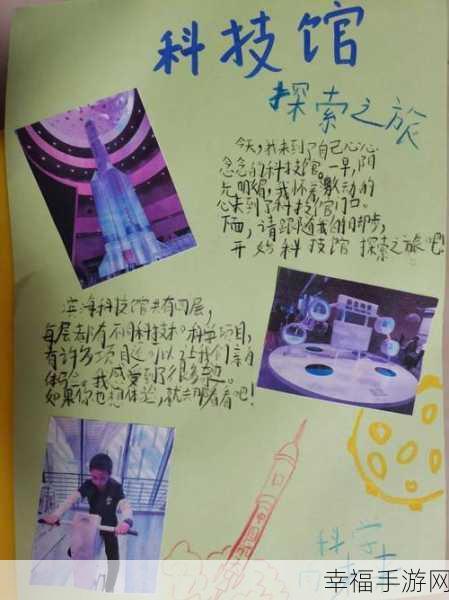 科技馆
探索之旅
今天,我来到了自己心心
念念的科技馆。一早,阳
光明媚,我怀着激动的
心来到了科技馆门口。
下面,请跟随我的脚步,
开始科技馆探索之旅吧!
滨海科技馆共有四层,
每层都有不同科技材。科学项目,
有许多项目还可以让我们亲自
体会。我感受到了很多乐趣。
如果你也想体验,就去那看看吧!
中国
科学
向未来
幸福手游网